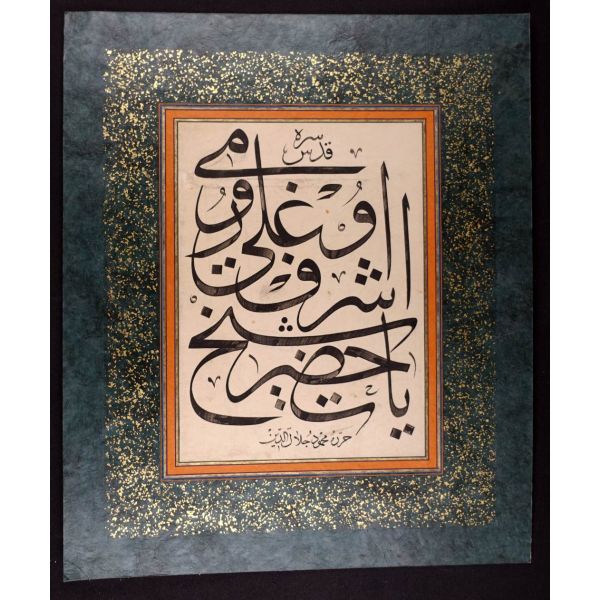 يا حضرت شيخ
اشرف اوغلى رومى
قدس سره
حرره محمود جلال الدين